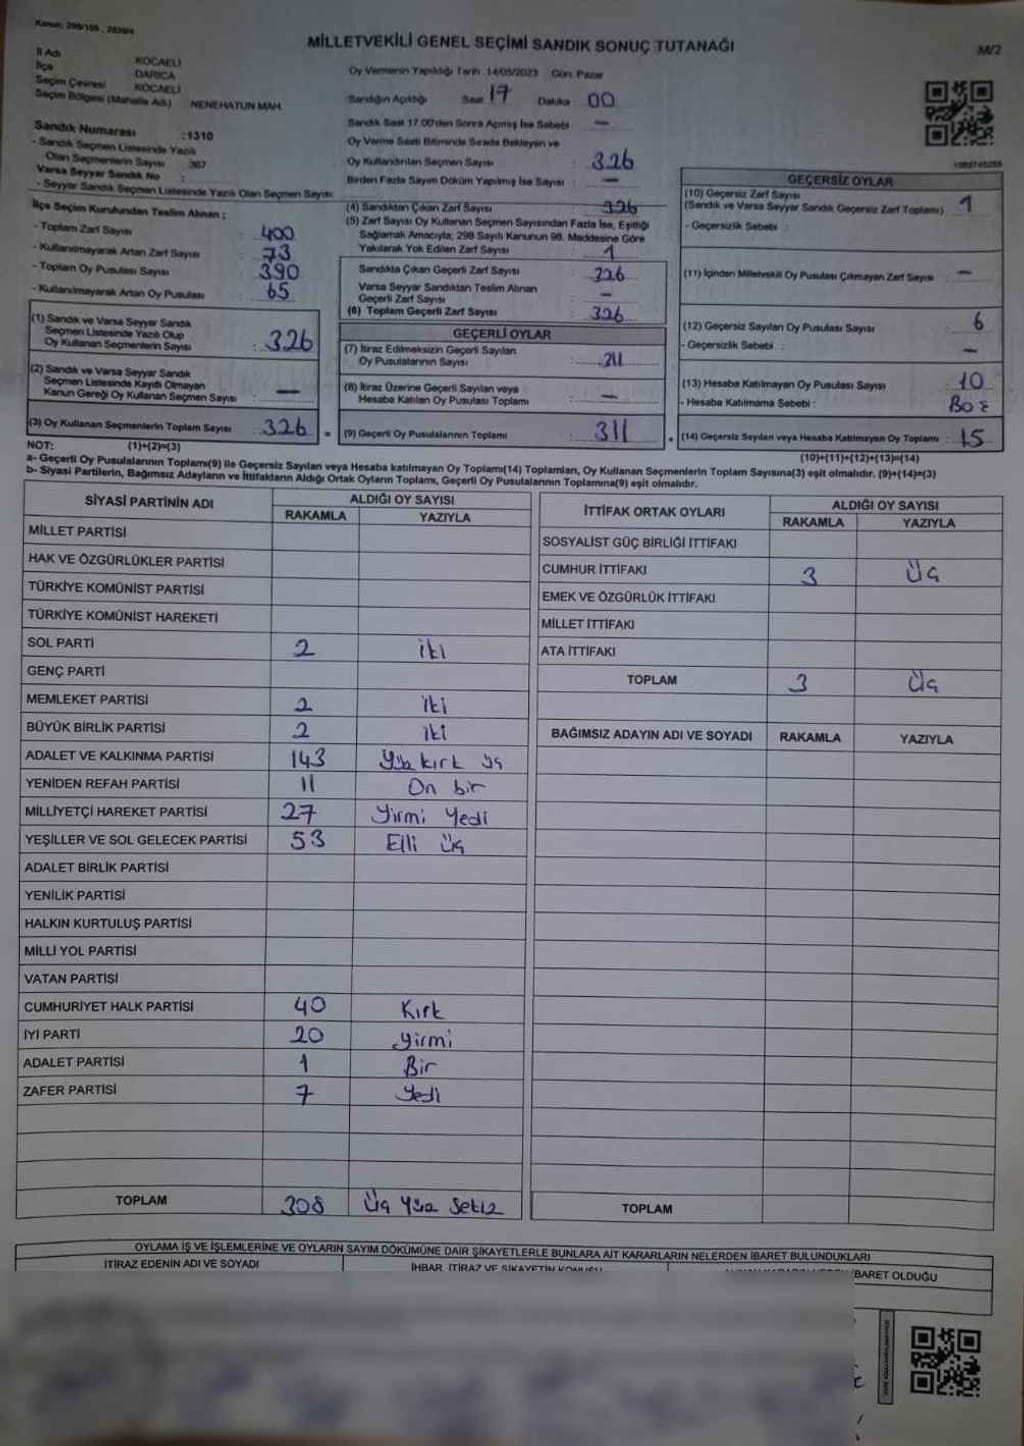 Kanun: 298/105 , 2839/4
MİLLETVEKİLİ GENEL SEÇİMİ SANDIK SONUÇ TUTANAĞI
M/2
İl Adı KOCAELİ
İlçe DARICA
Seçim Çevresi KOCAELİ
Seçim Bölgesi (Mahalle Adı) NENEHATUN MAH.
Sandık Numarası :1310
- Sandık Seçmen Listesinde Yazılı
Olan Seçmenlerin Sayısı 367
Varsa Seyyar Sandık No :
- Seyyar Sandık Seçmen Listesinde Yazılı Olan Seçmen Sayısı
Oy Vermenin Yapıldığı Tarih 14/05/2023 Gün: Pazar
Sandığın Açıldığı Saat 17 Dakika 00
Sandık Saat 17.00'den Sonra Açılmış İse Sebebi —
Oy Verme Saati Bitiminde Sırada Bekleyen ve
Oy Kullandırılan Seçmen Sayısı : 326
Birden Fazla Sayım Döküm Yapılmış İse Sayısı : —
İlçe Seçim Kurulundan Teslim Alınan ;
- Toplam Zarf Sayısı : 400
- Kullanılmayarak Artan Zarf Sayısı : 73
- Toplam Oy Pusulası Sayısı : 390
- Kullanılmayarak Artan Oy Pusulası : 65
(1) Sandık ve Varsa Seyyar Sandık
Seçmen Listesinde Yazılı Olup
Oy Kullanan Seçmenlerin Sayısı : 326
(2) Sandık ve Varsa Seyyar Sandık
Seçmen Listesinde Kayıtlı Olmayan
Kanun Gereği Oy Kullanan Seçmen Sayısı : —
(3) Oy Kullanan Seçmenlerin Toplam Sayısı : 326 =
(4) Sandıktan Çıkan Zarf Sayısı : 326
(5) Zarf Sayısı Oy Kullanan Seçmen Sayısından Fazla İse, Eşitliği
Sağlamak Amacıyla, 298 Sayılı Kanunun 98. Maddesine Göre
Yakılarak Yok Edilen Zarf Sayısı : 1
Sandıkta Çıkan Geçerli Zarf Sayısı : 326
Varsa Seyyar Sandıktan Teslim Alınan
Geçerli Zarf Sayısı : —
(6) Toplam Geçerli Zarf Sayısı : 326
GEÇERLİ OYLAR
(7) İtiraz Edilmeksizin Geçerli Sayılan
Oy Pusulalarının Sayısı : 311
(8) İtiraz Üzerine Geçerli Sayılan veya
Hesaba Katılan Oy Pusulası Toplamı : —
(9) Geçerli Oy Pusulalarının Toplamı : 311 +
GEÇERSİZ OYLAR
(10) Geçersiz Zarf Sayısı
(Sandık ve Varsa Seyyar Sandık Geçersiz Zarf Toplamı) : 1
- Geçersizlik Sebebi :
(11) İçinden Milletvekili Oy Pusulası Çıkmayan Zarf Sayısı : —
(12) Geçersiz Sayılan Oy Pusulası Sayısı : 6
- Geçersizlik Sebebi : —
(13) Hesaba Katılmayan Oy Pusulası Sayısı : 10
- Hesaba Katılmama Sebebi : Boş
(14) Geçersiz Sayılan veya Hesaba Katılmayan Oy Toplamı : 15
NOT: (1)+(2)=(3) (10)+(11)+(12)+(13)=(14)
a- Geçerli Oy Pusulalarının Toplamı(9) ile Geçersiz Sayılan veya Hesaba katılmayan Oy Toplamı(14) Toplamları, Oy Kullanan Seçmenlerin Toplam Sayısına(3) eşit olmalıdır. (9)+(14)=(3)
b- Siyasi Partilerin, Bağımsız Adayların ve İttifakların Aldığı Ortak Oyların Toplamı, Geçerli Oy Pusulalarının Toplamına(9) eşit olmalıdır.
SİYASİ PARTİNİN ADI ALDIĞI OY SAYISI
RAKAMLA YAZIYLA
MİLLET PARTİSİ
HAK VE ÖZGÜRLÜKLER PARTİSİ
TÜRKİYE KOMÜNİST PARTİSİ
TÜRKİYE KOMÜNİST HAREKETİ
SOL PARTİ 2 iki
GENÇ PARTİ
MEMLEKET PARTİSİ 2 iki
BÜYÜK BİRLİK PARTİSİ 2 iki
ADALET VE KALKINMA PARTİSİ 143 Yüz kırk üç
YENİDEN REFAH PARTİSİ 11 On bir
MİLLİYETÇİ HAREKET PARTİSİ 27 Yirmi Yedi
YEŞİLLER VE SOL GELECEK PARTİSİ 53 Elli üç
ADALET BİRLİK PARTİSİ
YENİLİK PARTİSİ
HALKIN KURTULUŞ PARTİSİ
MİLLİ YOL PARTİSİ
VATAN PARTİSİ
CUMHURİYET HALK PARTİSİ 40 Kırk
İYİ PARTİ 20 Yirmi
ADALET PARTİSİ 1 Bir
ZAFER PARTİSİ 7 Yedi
TOPLAM 308 Üç Yüz Sekiz
İTTİFAK ORTAK OYLARI ALDIĞI OY SAYISI
RAKAMLA YAZIYLA
SOSYALİST GÜÇ BİRLİĞİ İTTİFAKI
CUMHUR İTTİFAKI 3 Üç
EMEK VE ÖZGÜRLÜK İTTİFAKI
MİLLET İTTİFAKI
ATA İTTİFAKI
TOPLAM 3 Üç
BAĞIMSIZ ADAYIN ADI VE SOYADI RAKAMLA YAZIYLA
TOPLAM
OYLAMA İŞ VE İŞLEMLERİNE VE OYLARIN SAYIM DÖKÜMÜNE DAİR ŞİKAYETLERLE BUNLARA AİT KARARLARIN NELERDEN İBARET BULUNDUKLARI
İTİRAZ EDENİN ADI VE SOYADI İHBAR, İTİRAZ VE ŞİKAYETİN KONUSU İBARET OLDUĞU